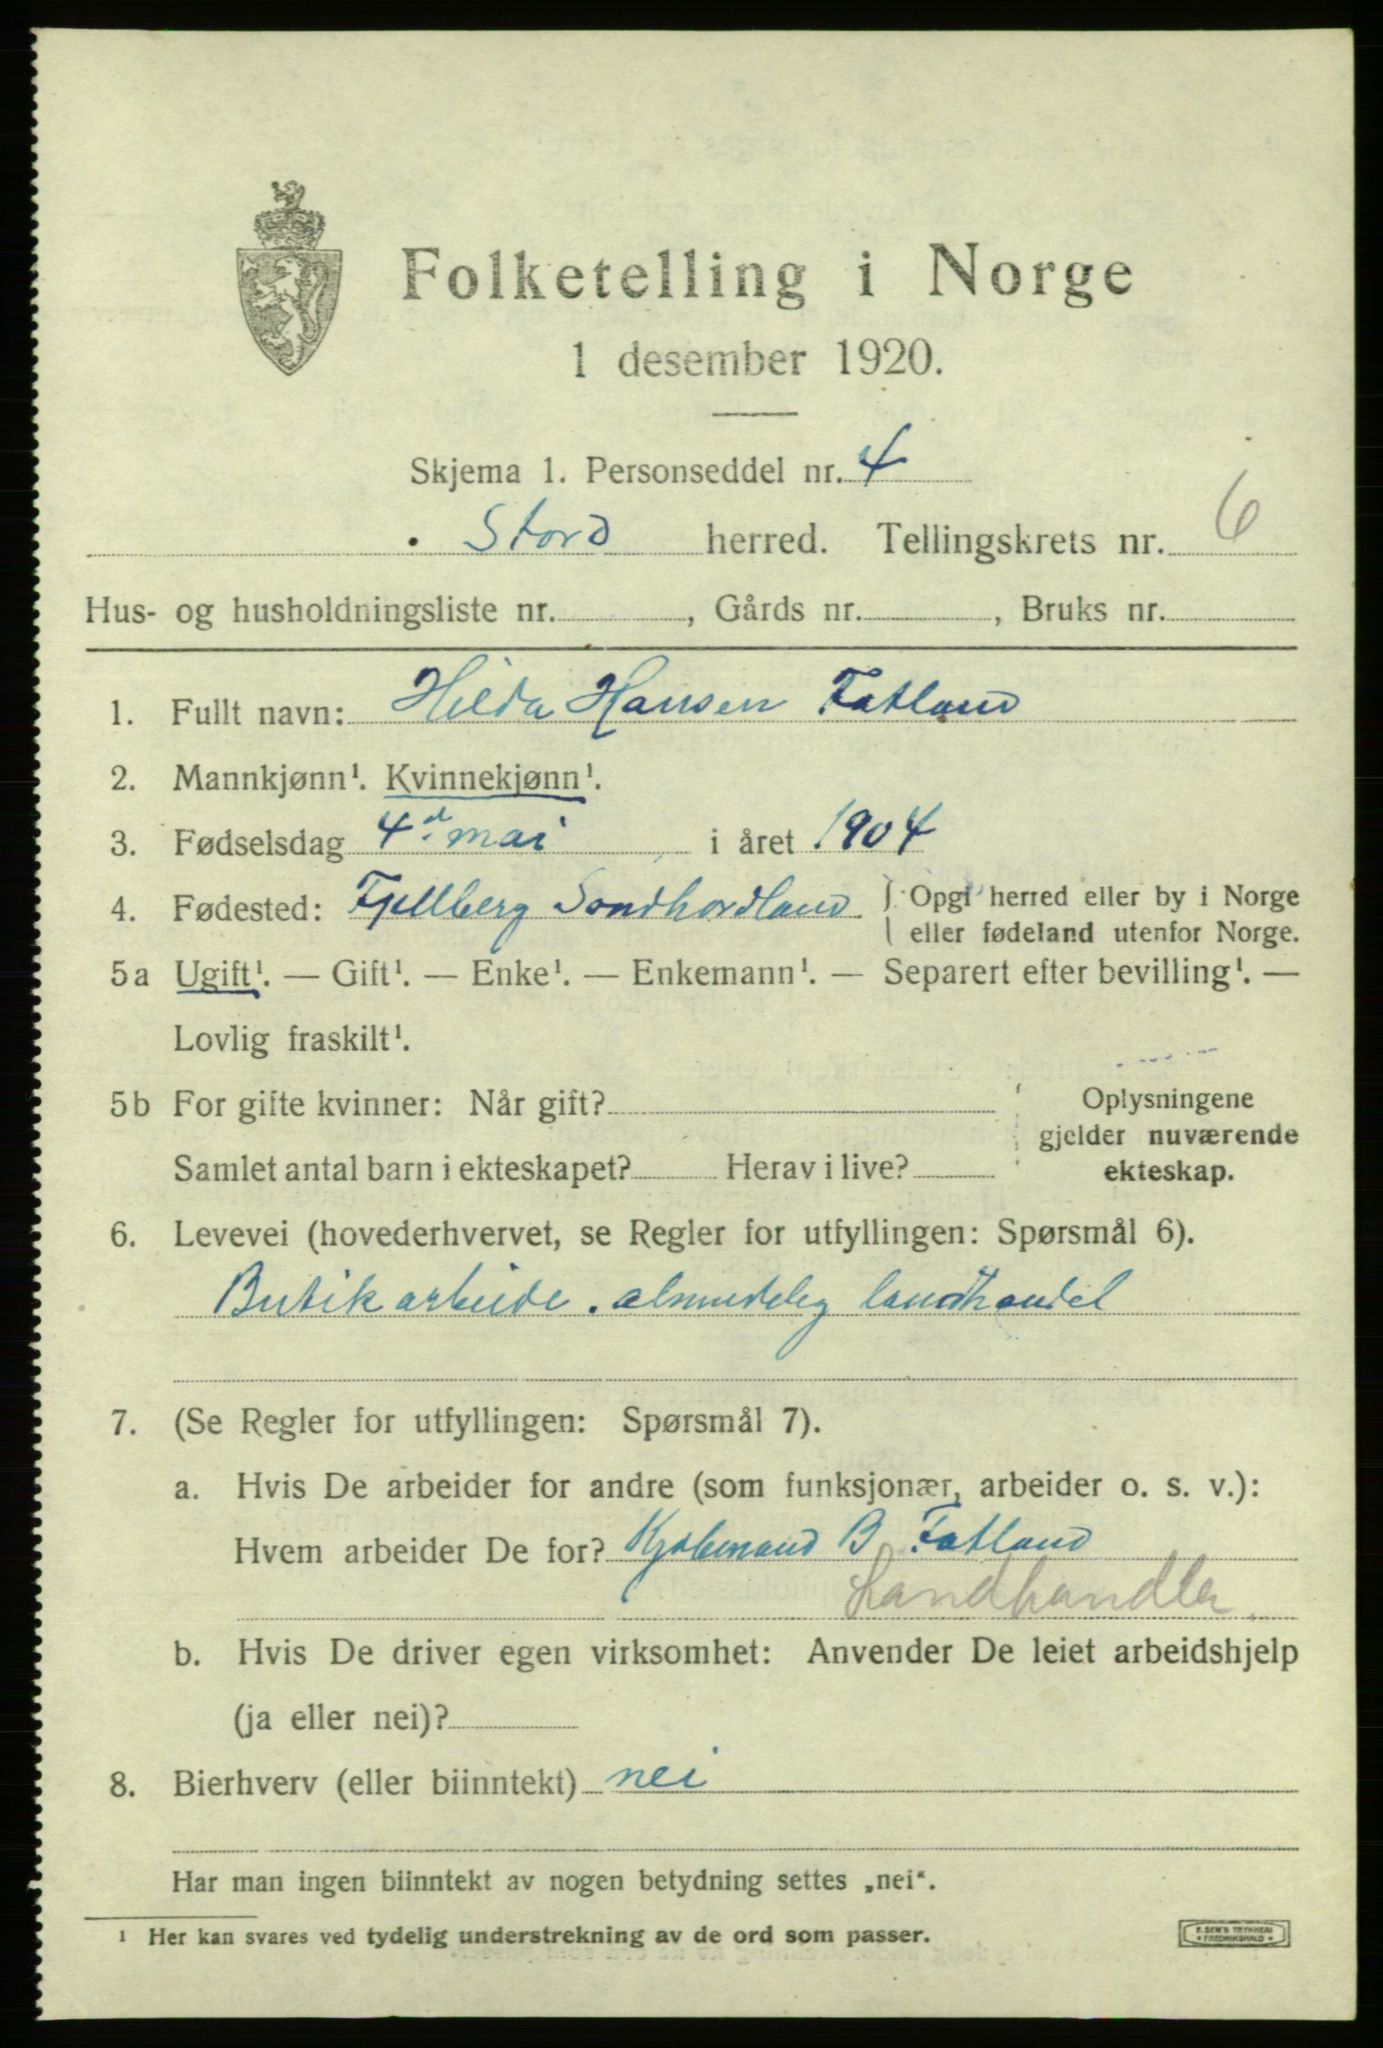 Folketelling i Norge
1 desember 1920.
Skjema 1. Personseddel nr. 4
Stord herred. Tellingskrets nr. 6
Hus- og husholdningsliste nr. , Gårds nr. , Bruks nr.
1. Fullt navn: Hilda Hansen Fatland
2. Mannkjønn¹. Kvinnekjønn¹.
3. Fødselsdag 4d. mai i året 1904
4. Fødested: Fjellberg Sondhordland { Opgi herred eller by i Norge
eller fødeland utenfor Norge.
5a Ugift¹. — Gift¹. — Enke¹. — Enkemann¹. — Separert efter bevilling¹. —
Lovlig fraskilt¹.
5b For gifte kvinner: Når gift? Oplysningene
gjelder nuværende
Samlet antal barn i ekteskapet? Herav i live? ekteskap.
6. Levevei (hovederhvervet, se Regler for utfyllingen: Spørsmål 6).
Butik arbeide. almindelig landhandel
7. (Se Regler for utfyllingen: Spørsmål 7).
a. Hvis De arbeider for andre (som funksjonær, arbeider o. s. v.):
Hvem arbeider De for? Kjøbmand B Fatland
Landhandler
b. Hvis De driver egen virksomhet: Anvender De leiet arbeidshjelp
(ja eller nei)?
8. Bierhverv (eller biinntekt) nei
Har man ingen biinntekt av nogen betydning settes „nei“.
¹ Her kan svares ved tydelig understrekning av de ord som passer.
E. SEM'S TRYKKERI
FREDRIKSHALD